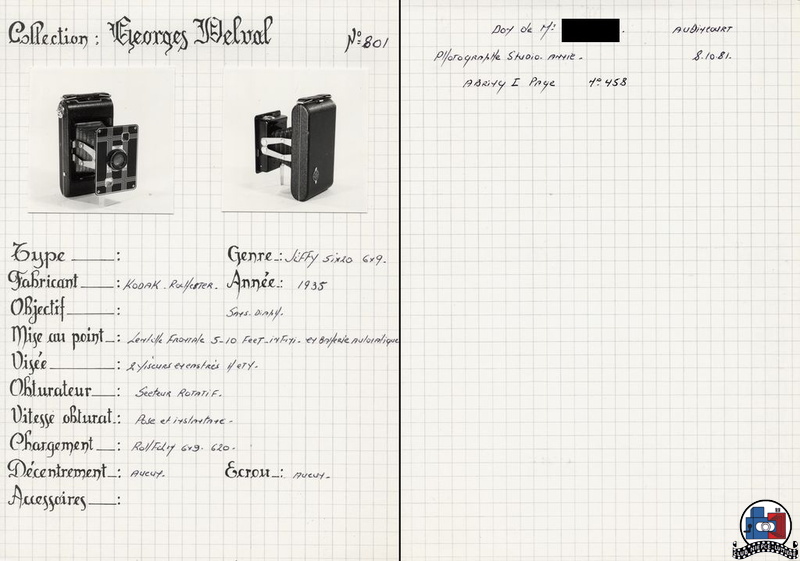 Collection : Georges Delval No: 801
Type : Genre : Jiffy Six20 6x9.
Fabricant : KODAK . Rochester. Année : 1935
Objectif : Sans. Diaph.
Mise au point : Lentille Frontale 5-10 Feet-infini. et Batterie Automatique
Visée : 2 Viseurs
Obturateur : Secteur ROTATIF.
Vitesse obturat. : Pose et instantané.
Chargement : RollFilm 6x9. 620.
Décentrement : Aucun. Ecrou : Aucun.
Accessoires :
Don de Mr AUDINCOURT
Photographe Studio. Annie. 8.10.81.
Page No 458